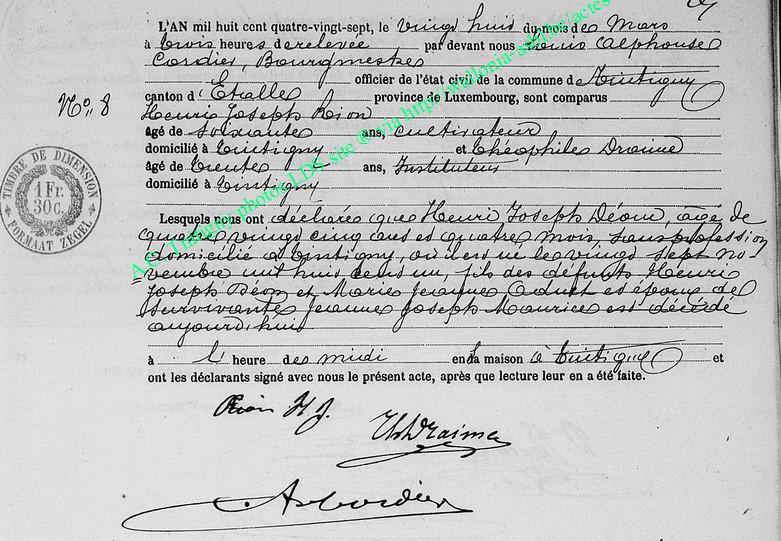 L'AN mil huit cent quatre-vingt-sept, le vingt huit du mois de Mars
à trois heures de relevée par devant nous Louis Alphonse
Cordier, Bourgmestre
officier de l'état civil de la commune de Tintigny
canton d'Etalle province de Luxembourg, sont comparus
No. 8
Henri Joseph Rion
âgé de soixante ans, cultivateur
domicilié à Tintigny et Théophile
âgé de trente ans, Instituteur
domicilié à Tintigny
TIMBRE DE DIMENSION
1 Fr.
30 c.
FORMAAT ZEGEL
Lesquels nous ont déclaré que Henri Joseph Déom, âgé de
quatre vingt cinq ans et quatre mois, sans profession
domicilié à Tintigny, où il est né le vingt sept no-
vembre mil huit cent un, fils des défunts Henri
Joseph Déom et Marie Jeanne et époux de
survivante Jeanne Joseph Maurice est décédé
aujourd'hui
à l'heure de midi en la maison à Tintigny et
ont les déclarants signé avec nous le présent acte, après que lecture leur en a été faite.
Rion H. J.
Cordier
A.C. Tintigny photos LDS site @ via http://wallonia-asbl.be/actes